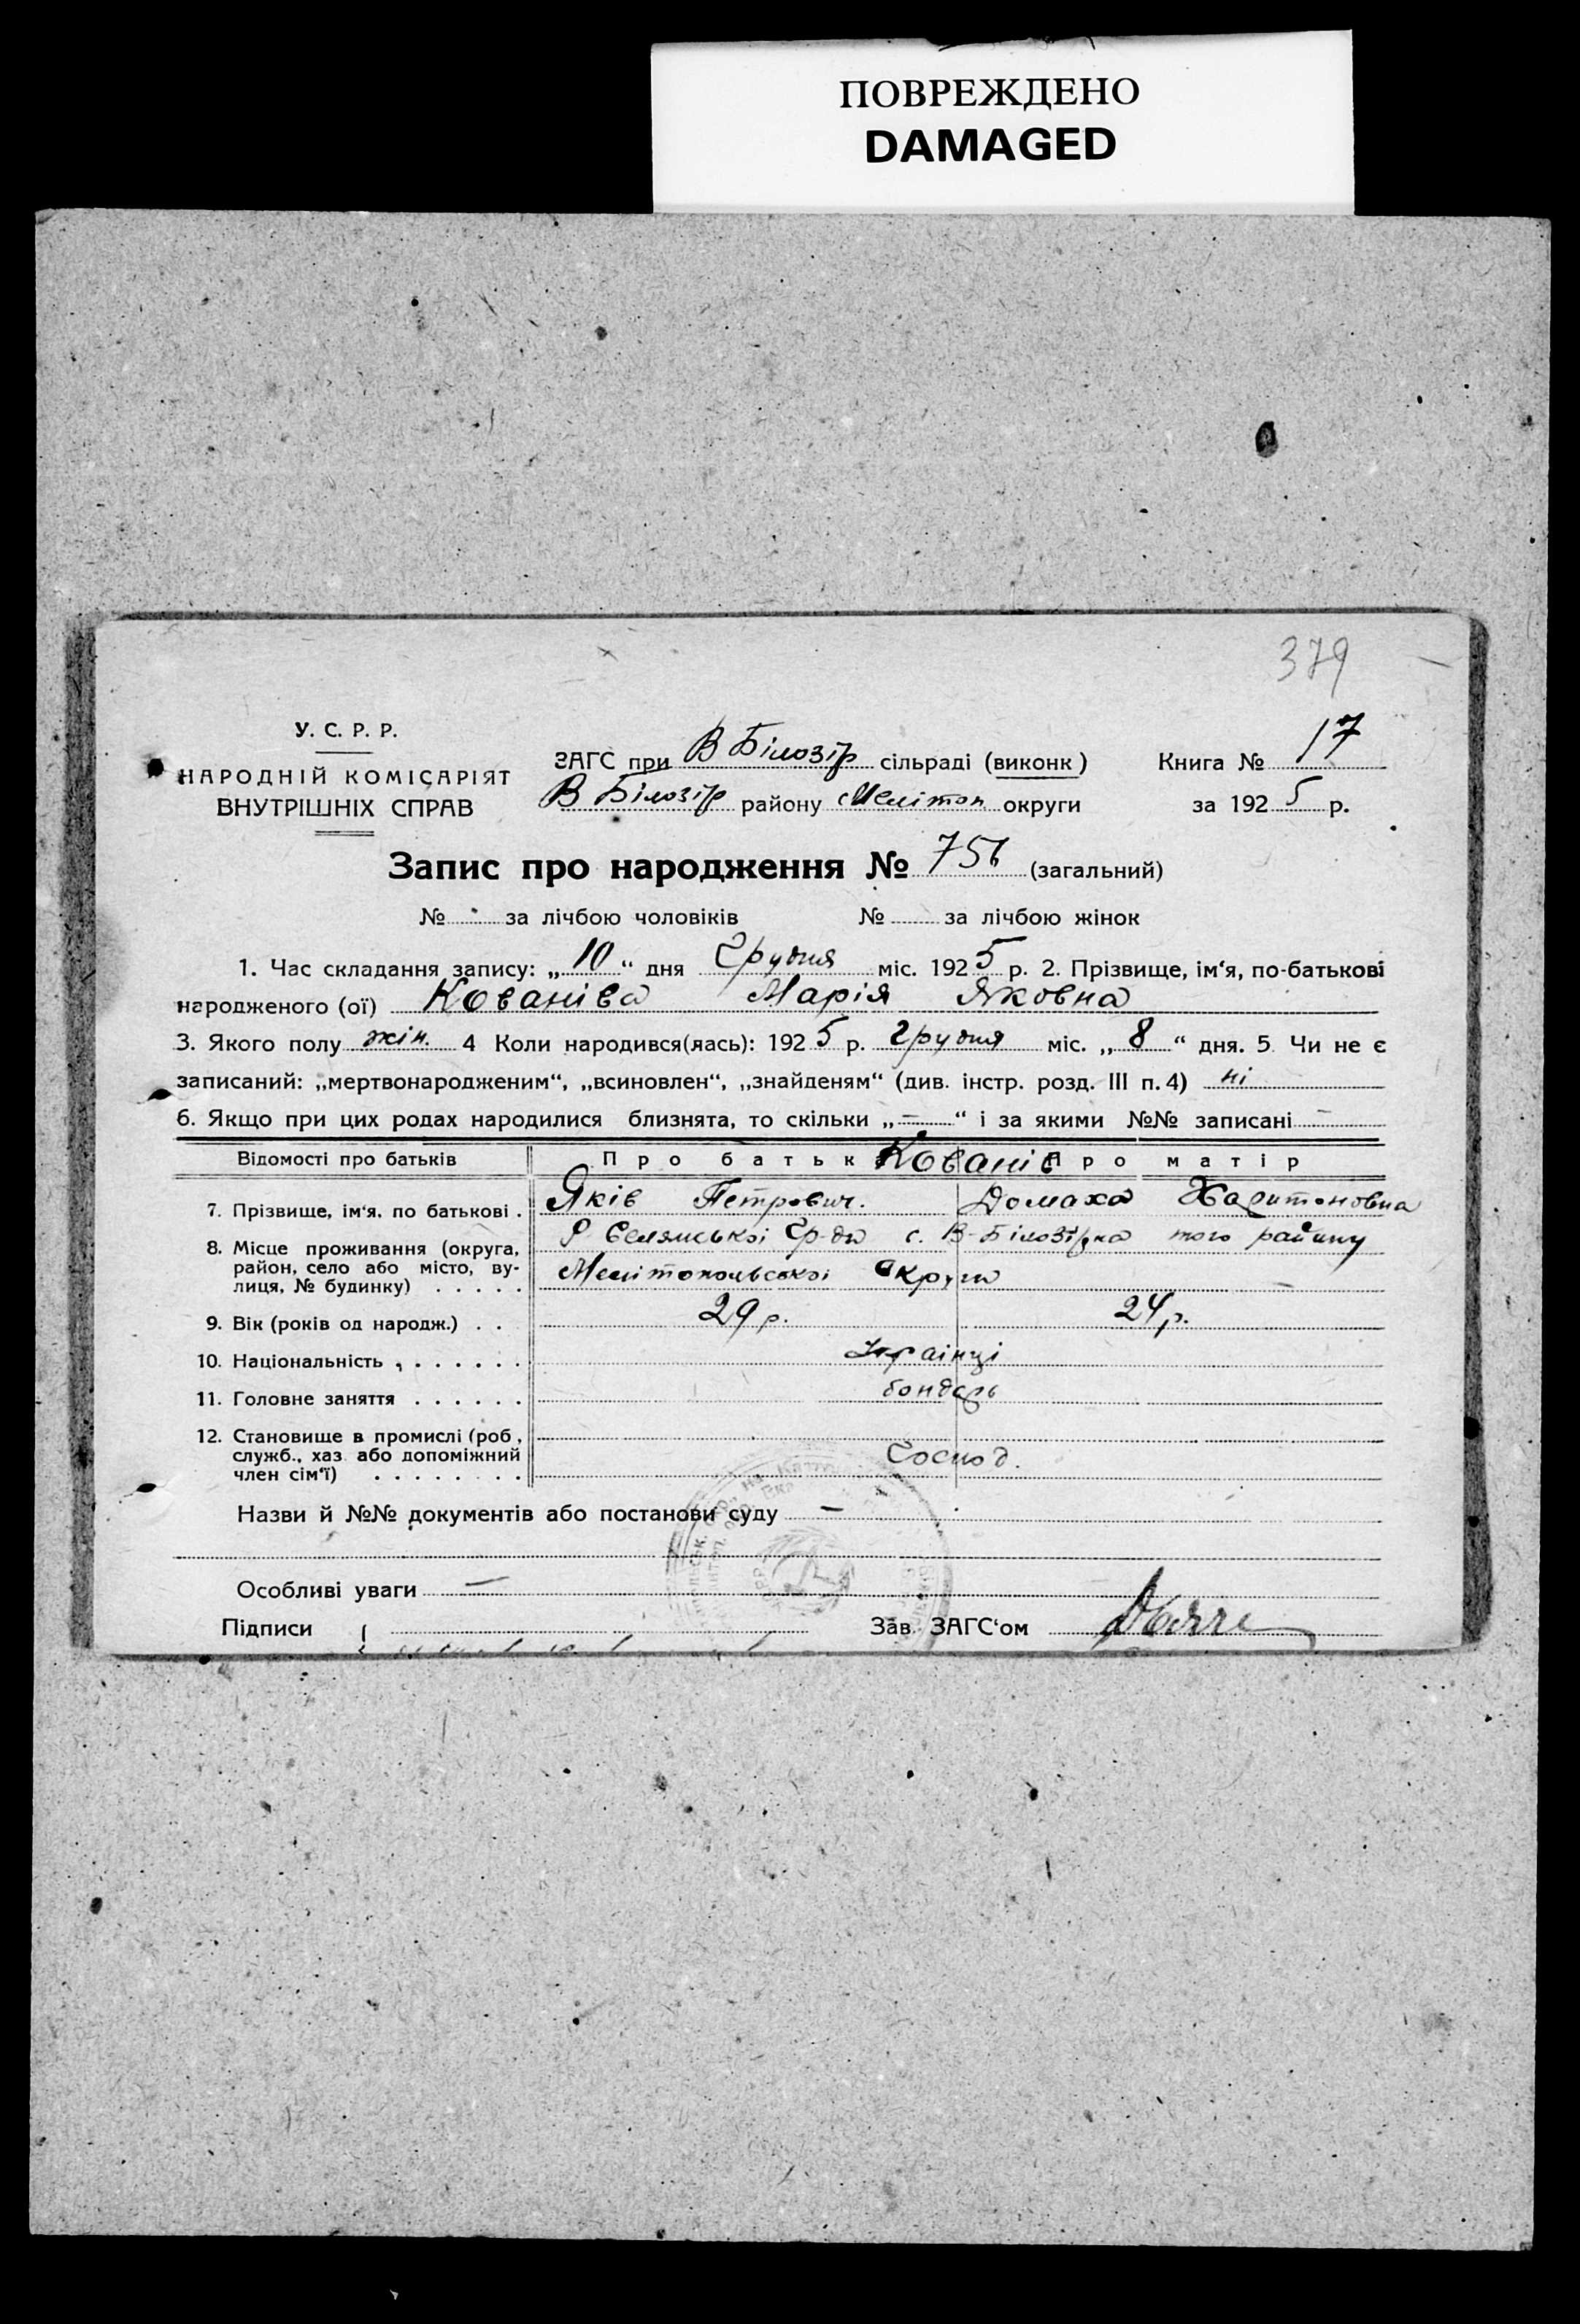 ПОВРЕЖДЕНО
DAMAGED
379
У. С. Р. Р.
НАРОДНІЙ КОМІСАРІЯТ
ВНУТРІШНІХ СПРАВ
ЗАГС при В Білозір сільраді (виконк) Книга № 17
В Білозір району Мелітоп округи за 1925 р.
Запис про народження № 756 (загальний)
№ за лічбою чоловіків № за лічбою жінок
1. Час складання запису: „10“ дня Грудня міс. 1925 р. 2. Прізвище, ім‘я, по-батькові
народженого (ої) Кованіва Марія Яковна
3. Якого полу жін. 4 Коли народився(лась): 1925 р. Грудня міс. „8“ дня. 5 Чи не є
записаний: „мертвонародженим“, „всиновлен“, „знайденям“ (див. інстр. розд. III п. 4) ні
6. Якщо при цих родах народилися близнята, то скільки „—“ і за якими №№ записані —
Відомості про батьків Про батьк Кованів Про матір
7. Прізвище, ім‘я, по батькові . Яків Петрович. Домаха Харитоновна
8. Місце проживання (округа, район, село або місто, вулиця, № будинку) . . . . . с. В-Білозірка того району
Мелітопольської Округи
9. Вік (років од народж.) . . 29 р. 24 р.
10. Національність . . . . . . . Українці
11. Головне заняття . . . . . . бондарь
12. Становище в промислі (роб., служб., хаз або допоміжний член сім‘ї) . . . . . . . . Господ.
Назви й №№ документів або постанови суду —
Особливі уваги —
Підписи { Зав. ЗАГС‘ом